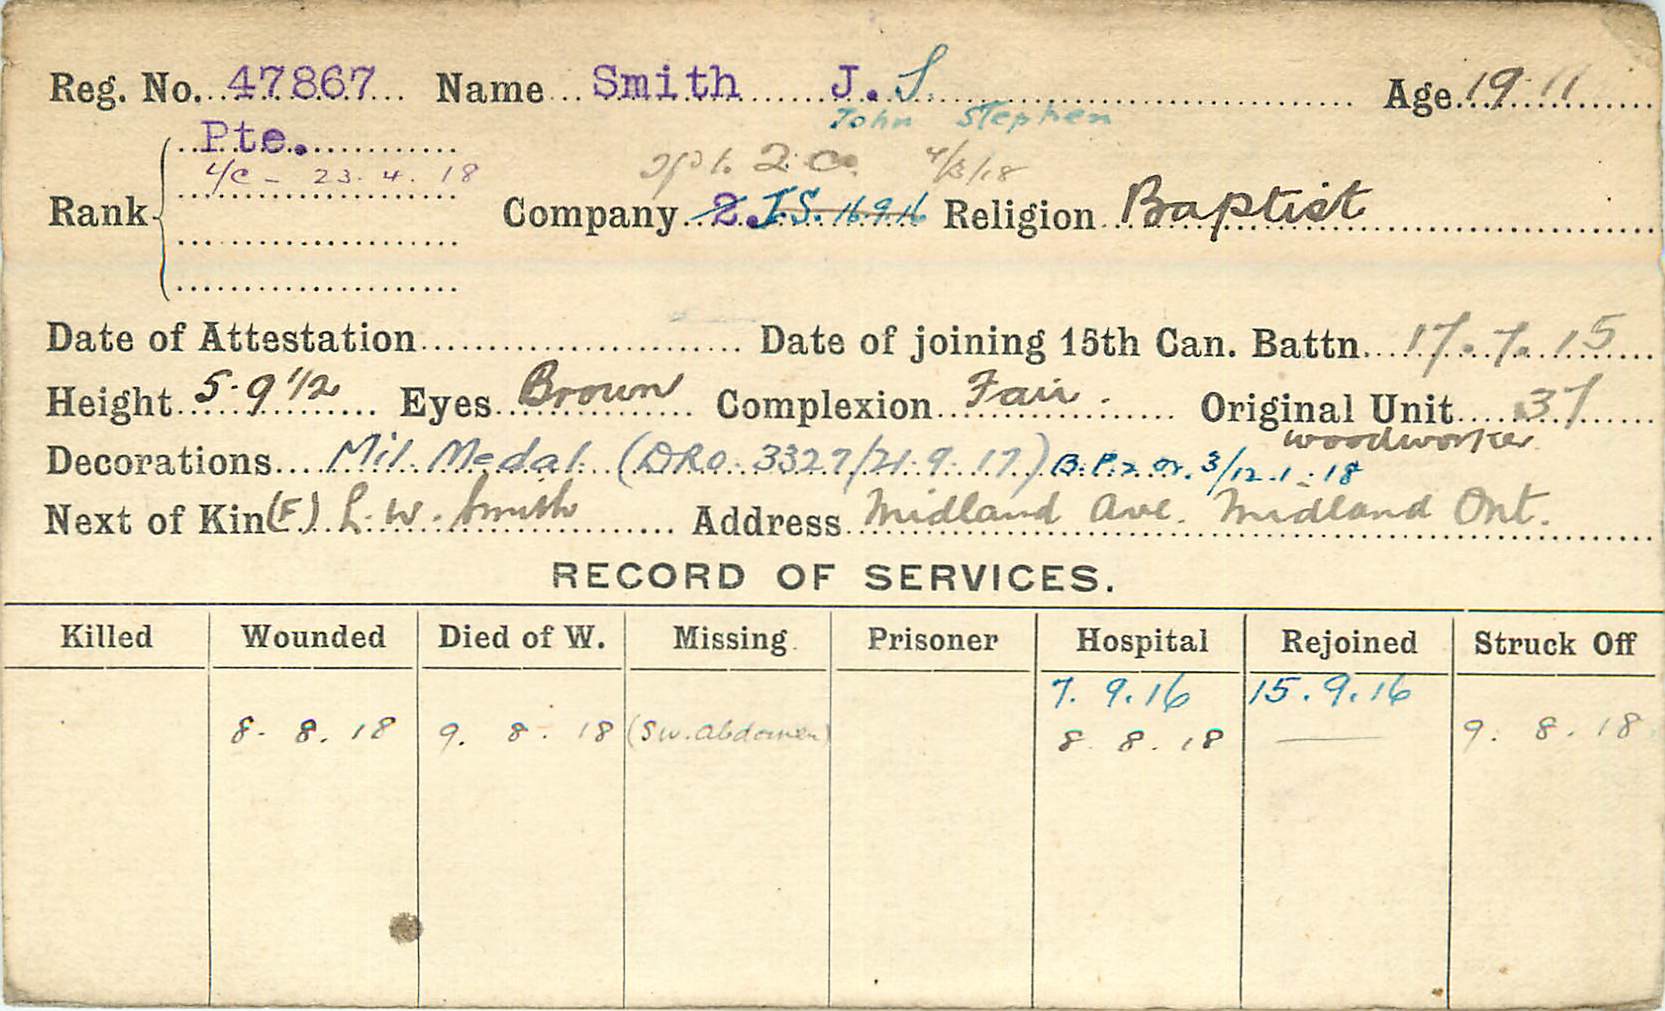 Reg. No. 47867 Name Smith J. S. Age 19 11
John Stephen
Pte.
L/C - 23.4.18
2 Co. 4/3/18
Rank Company 2. T.S. 16.9.16 Religion Baptist
Date of Attestation Date of joining 15th Can. Battn. 17.7.15
Height 5.9 1/2 Eyes Brown Complexion Fair. Original Unit 37
woodworker
Decorations Mil. Medal. (DRO. 3327/21.9.17) B.P.2. Or. 3/12.1.18
Next of Kin (F) L. W. Smith Address Midland Ave. Midland Ont.
RECORD OF SERVICES.
Killed Wounded Died of W. Missing Prisoner Hospital Rejoined Struck Off
7.9.16 15.9.16
8.8.18 9.8.18 (SW. abdomen) 8.8.18 — 9.8.18